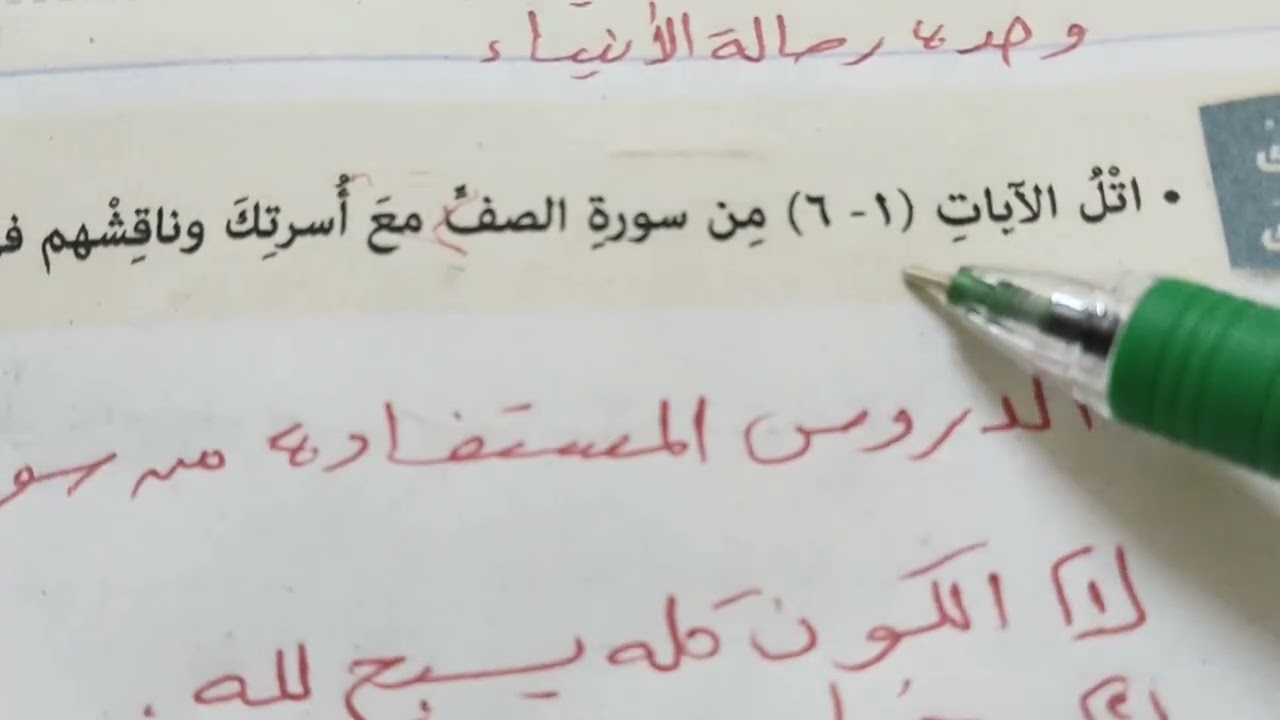 وحدة رسالة الأنبياء
• اتْلُ الآياتِ (١- ٦) مِن سورةِ الصفِّ معَ أُسرتِكَ وناقِشْهم
الدروس المستفادة من
١ الكون كله يسبح لله .